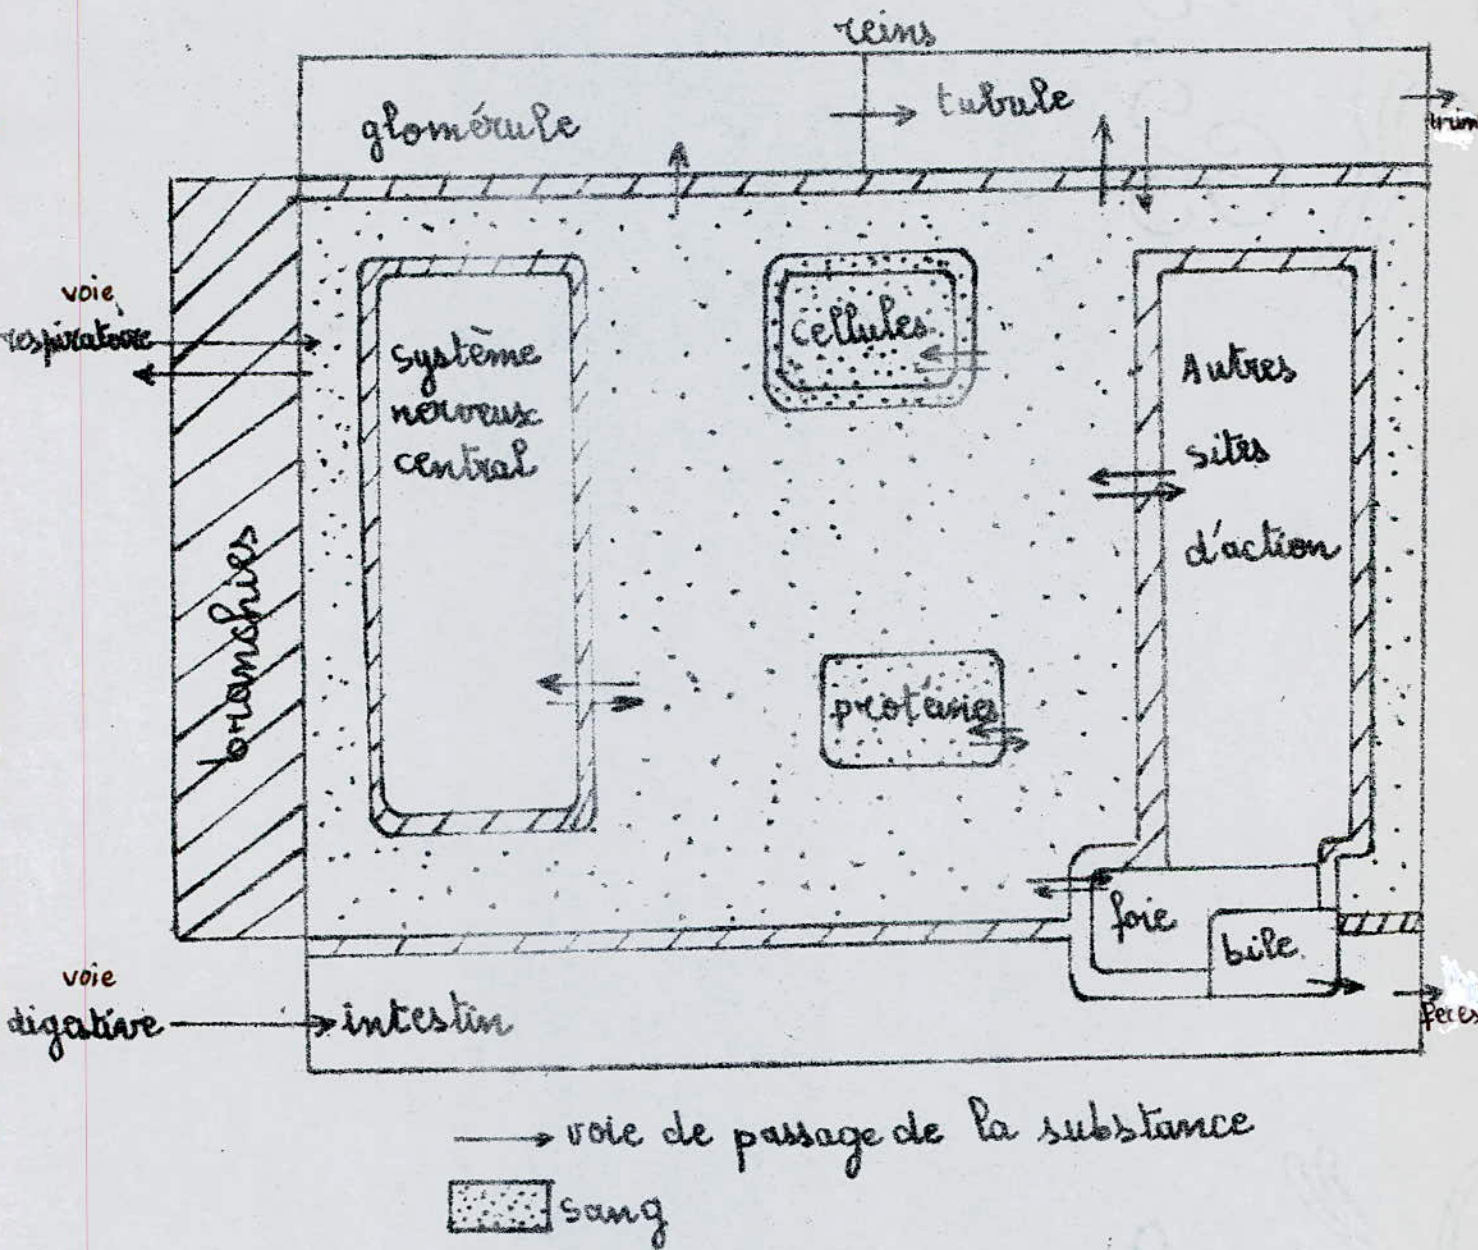 reins
glomérule
tubule
voie
respiratoire
Système
nerveux
central
cellules
Autres
sites
d'action
branchies
protéines
foie
bile
voie
digestive
intestin
feces
voie de passage de la substance
sang